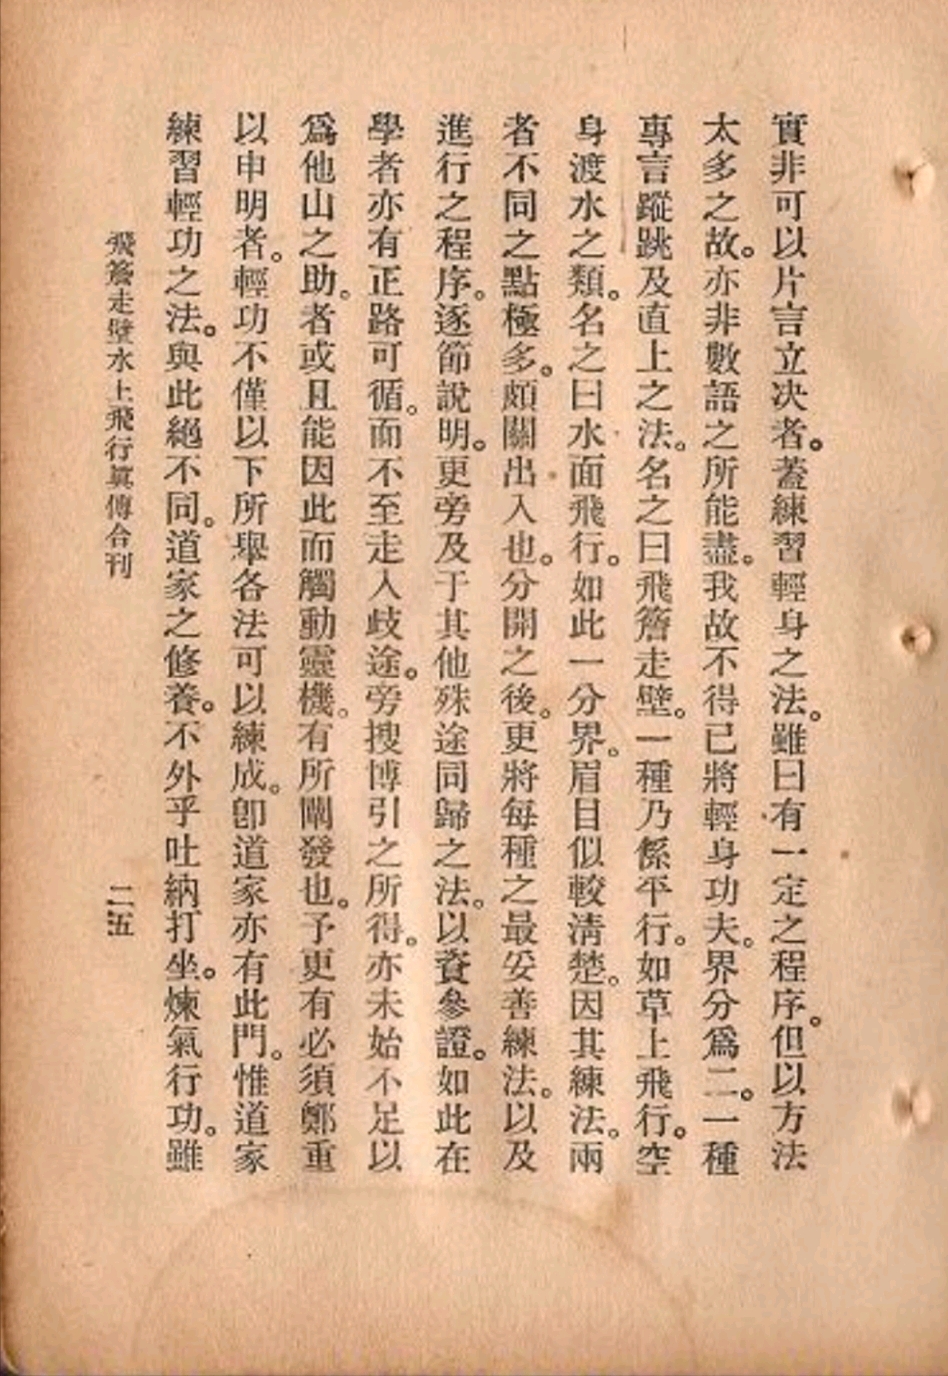 實非可以片言立決者。蓋練習輕身之法。雖曰有一定之程序。但以方法
太多之故。亦非數語之所能盡。我故不得已將輕身功夫。界分爲二。一種
專言蹤跳及直上之法。名之曰飛簷走壁。一種乃係平行。如草上飛行。空
身渡水之類。名之曰水面飛行。如此一分界。眉目似較淸楚。因其練法。兩
者不同之點極多。頗關出入也。分開之後。更將每種之最妥善練法。以及
進行之程序。逐節說明。更旁及于其他殊途同歸之法。以資參證。如此在
學者亦有正路可循。而不至走入歧途。旁搜博引之所得。亦未始不足以
爲他山之助。者或且能因此而觸動靈機。有所闡發也。予更有必須鄭重
以申明者。輕功不僅以下所舉各法可以練成。卽道家亦有此門。惟道家
練習輕功之法。與此絕不同。道家之修養。不外乎吐納打坐。煉氣行功。雖
飛簷走壁水上飛行眞傳合刊
二五